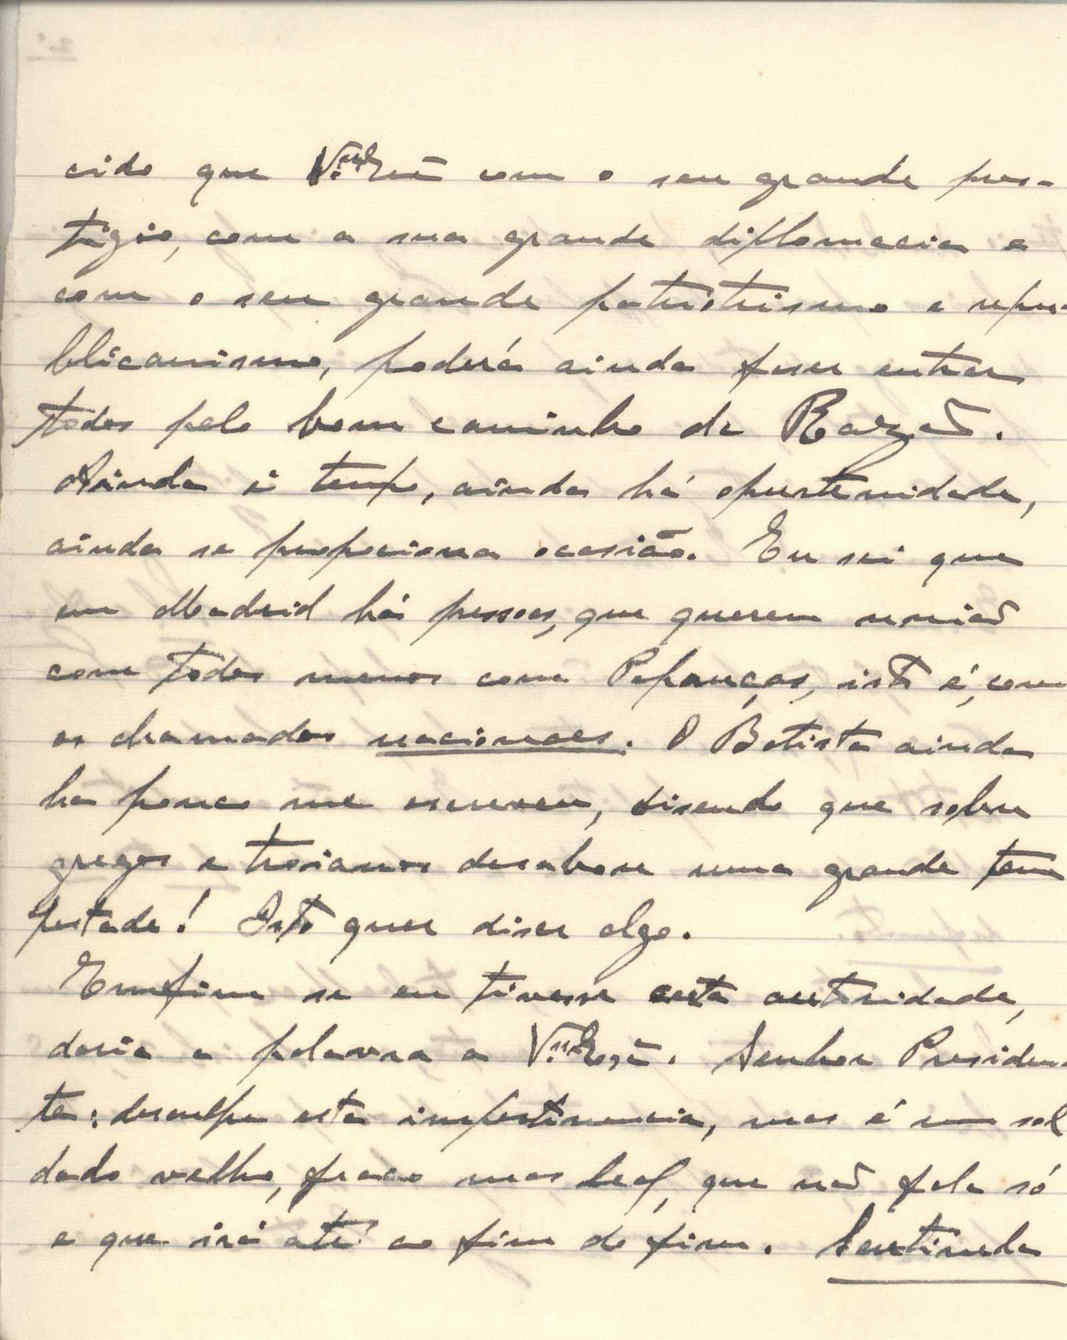 cido que V.ª Excª com o seu grande pres-
tigio, com a sua grande diplomacia e
com o seu grande patriotrismo e repu-
blicanismo, poderá ainda faser entrar
todos pelo bom caminho da Razão.
Ainda é tempo, ainda há oportunidade,
ainda se proporciona ocasião. Eu sei que
em Madrid há pessoas, que querem união
com todos menos com , isto é, com
os chamados nacionaes. O Batista ainda
ha pouco me escreveu, disendo que sobre
gregos e troianos desabou uma grande tem
pestade! Isto quer diser algo.
Emfim se eu tivesse certa autoridade,
daria a palavra a V.ª Excª. Senhor Presiden-
te: desculpe esta impertinencia, mas é um sol
dado velho, fraco mas leal, que não fala só
e que irá até ao fim do fim. Sentinela